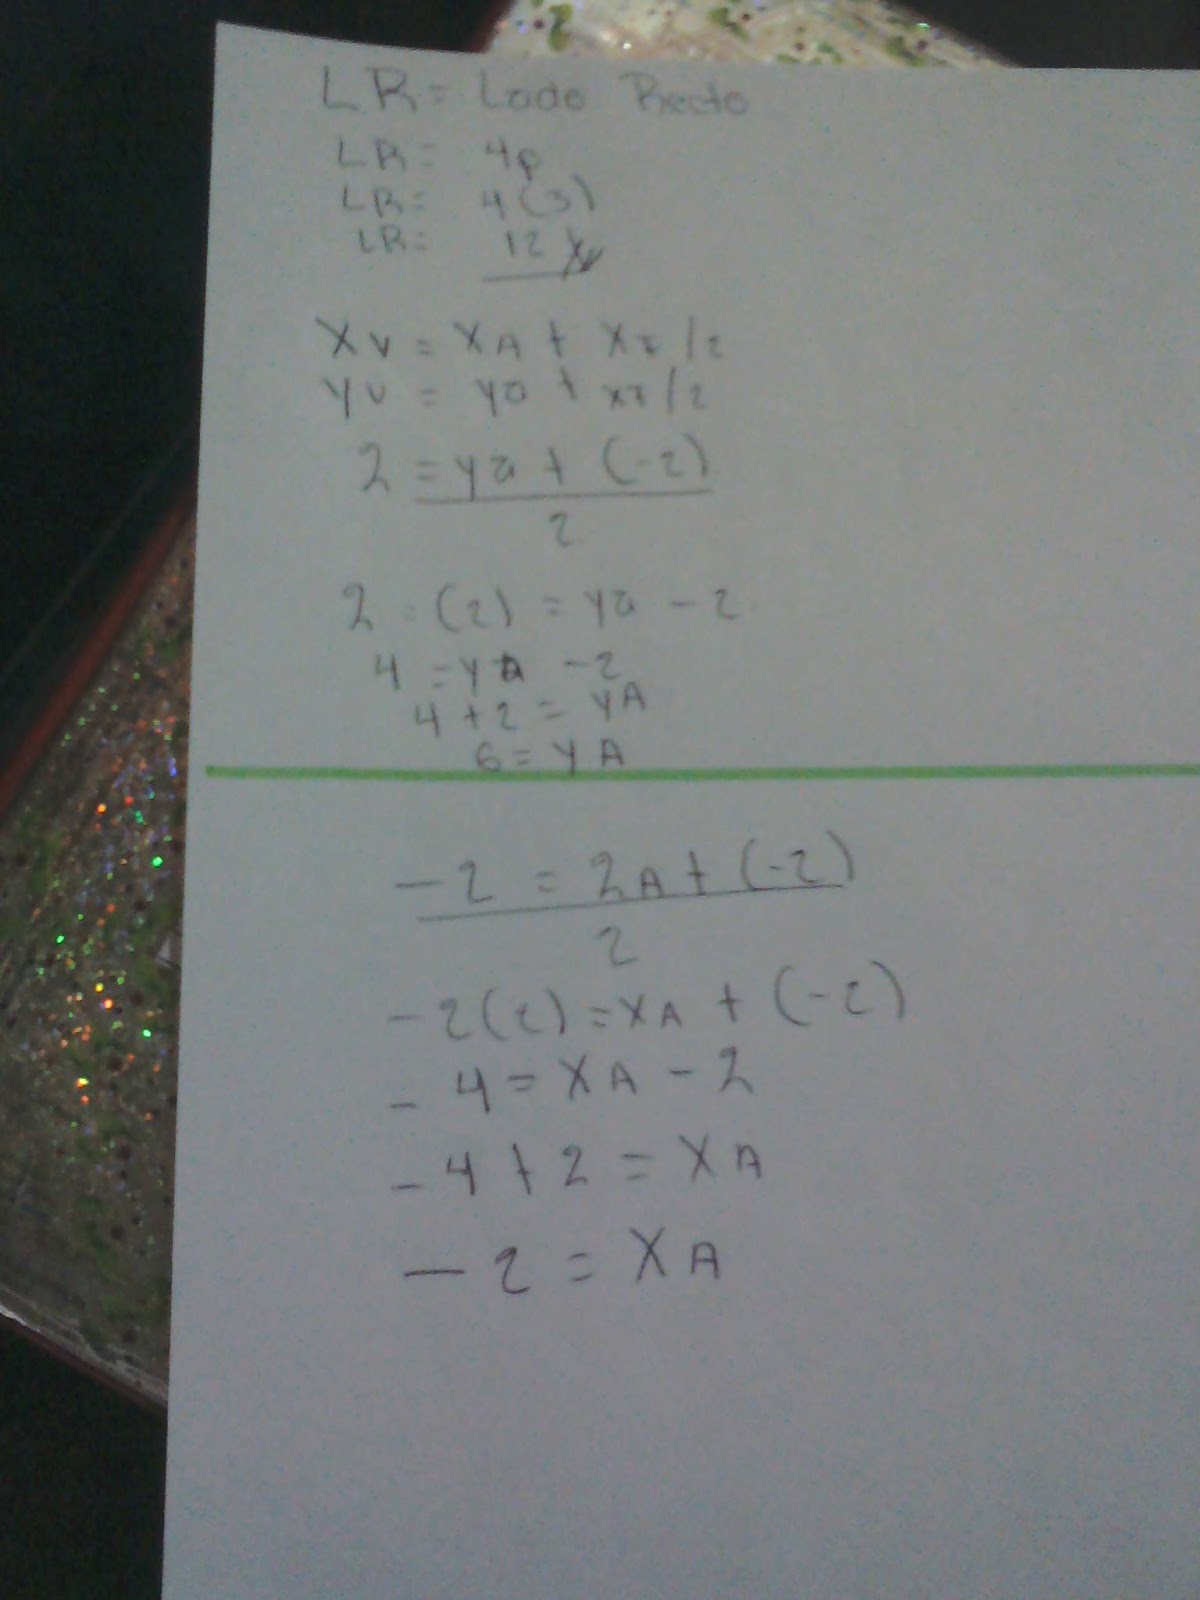 LR = Lado Recto
LR = 4p
LR = 4(3)
LR = 12
XV = XA + Xz/2
YV = ya + xz/2
2 = ya + (-2)
2
2 (2) = ya - 2
4 = yA - 2
4 + 2 = yA
6 = yA
-2 = 2A + (-2)
2
-2(2) = XA + (-2)
-4 = XA - 2
-4 + 2 = XA
-2 = XA